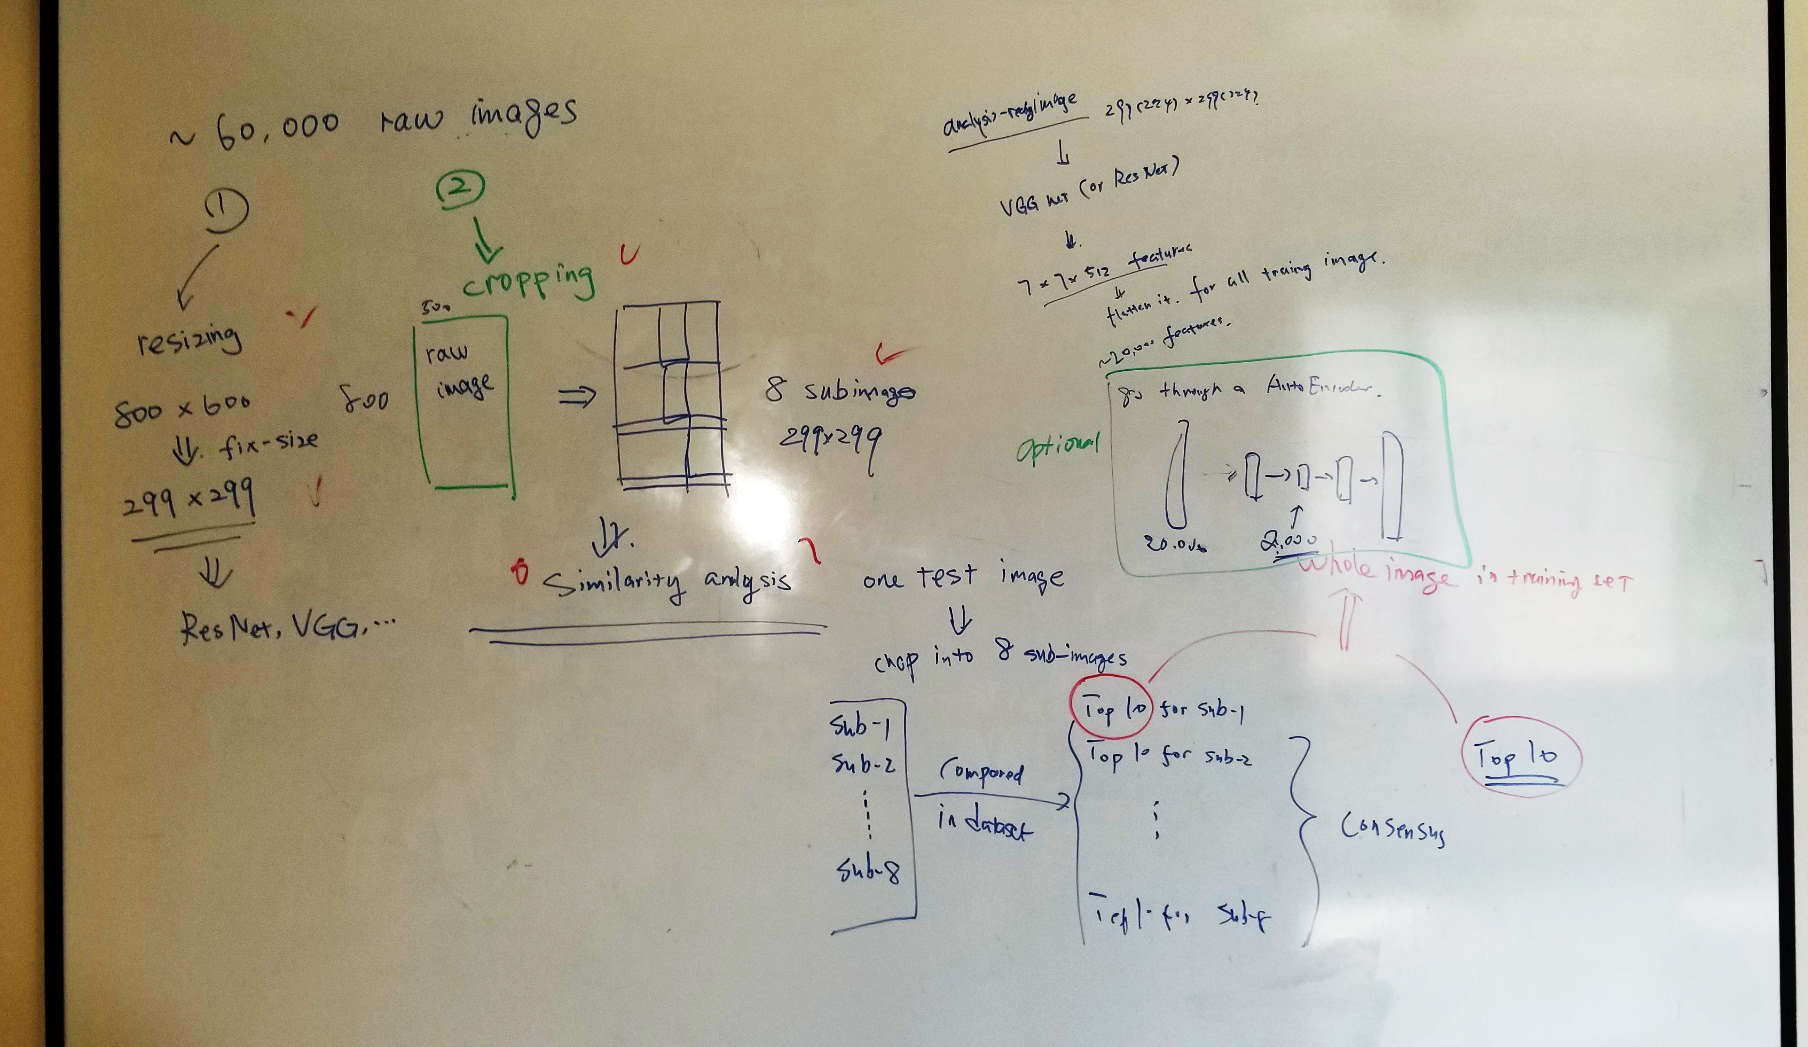 ~ 60,000 raw images
①
resizing
800 × 600
fix-size
299 × 299
ResNet, VGG, ...
②
cropping
500
800
raw
image
8 subimage
299×299
Similarity analysis
analysis-ready image 299(224) × 299(224)
VGG net (or ResNet)
7 × 7 × 512 features
flatten it. for all traing image.
~20,000 features.
optional
go through a AutoEncoder.
20.000
2,000
whole image in training set
one test image
chop into 8 sub-images
Sub-1
Sub-2
Sub-8
Compared
in dataset
Top 10 for sub-1
Top 10 for sub-2
Top 10 for Sub-8
Consensus
Top 10